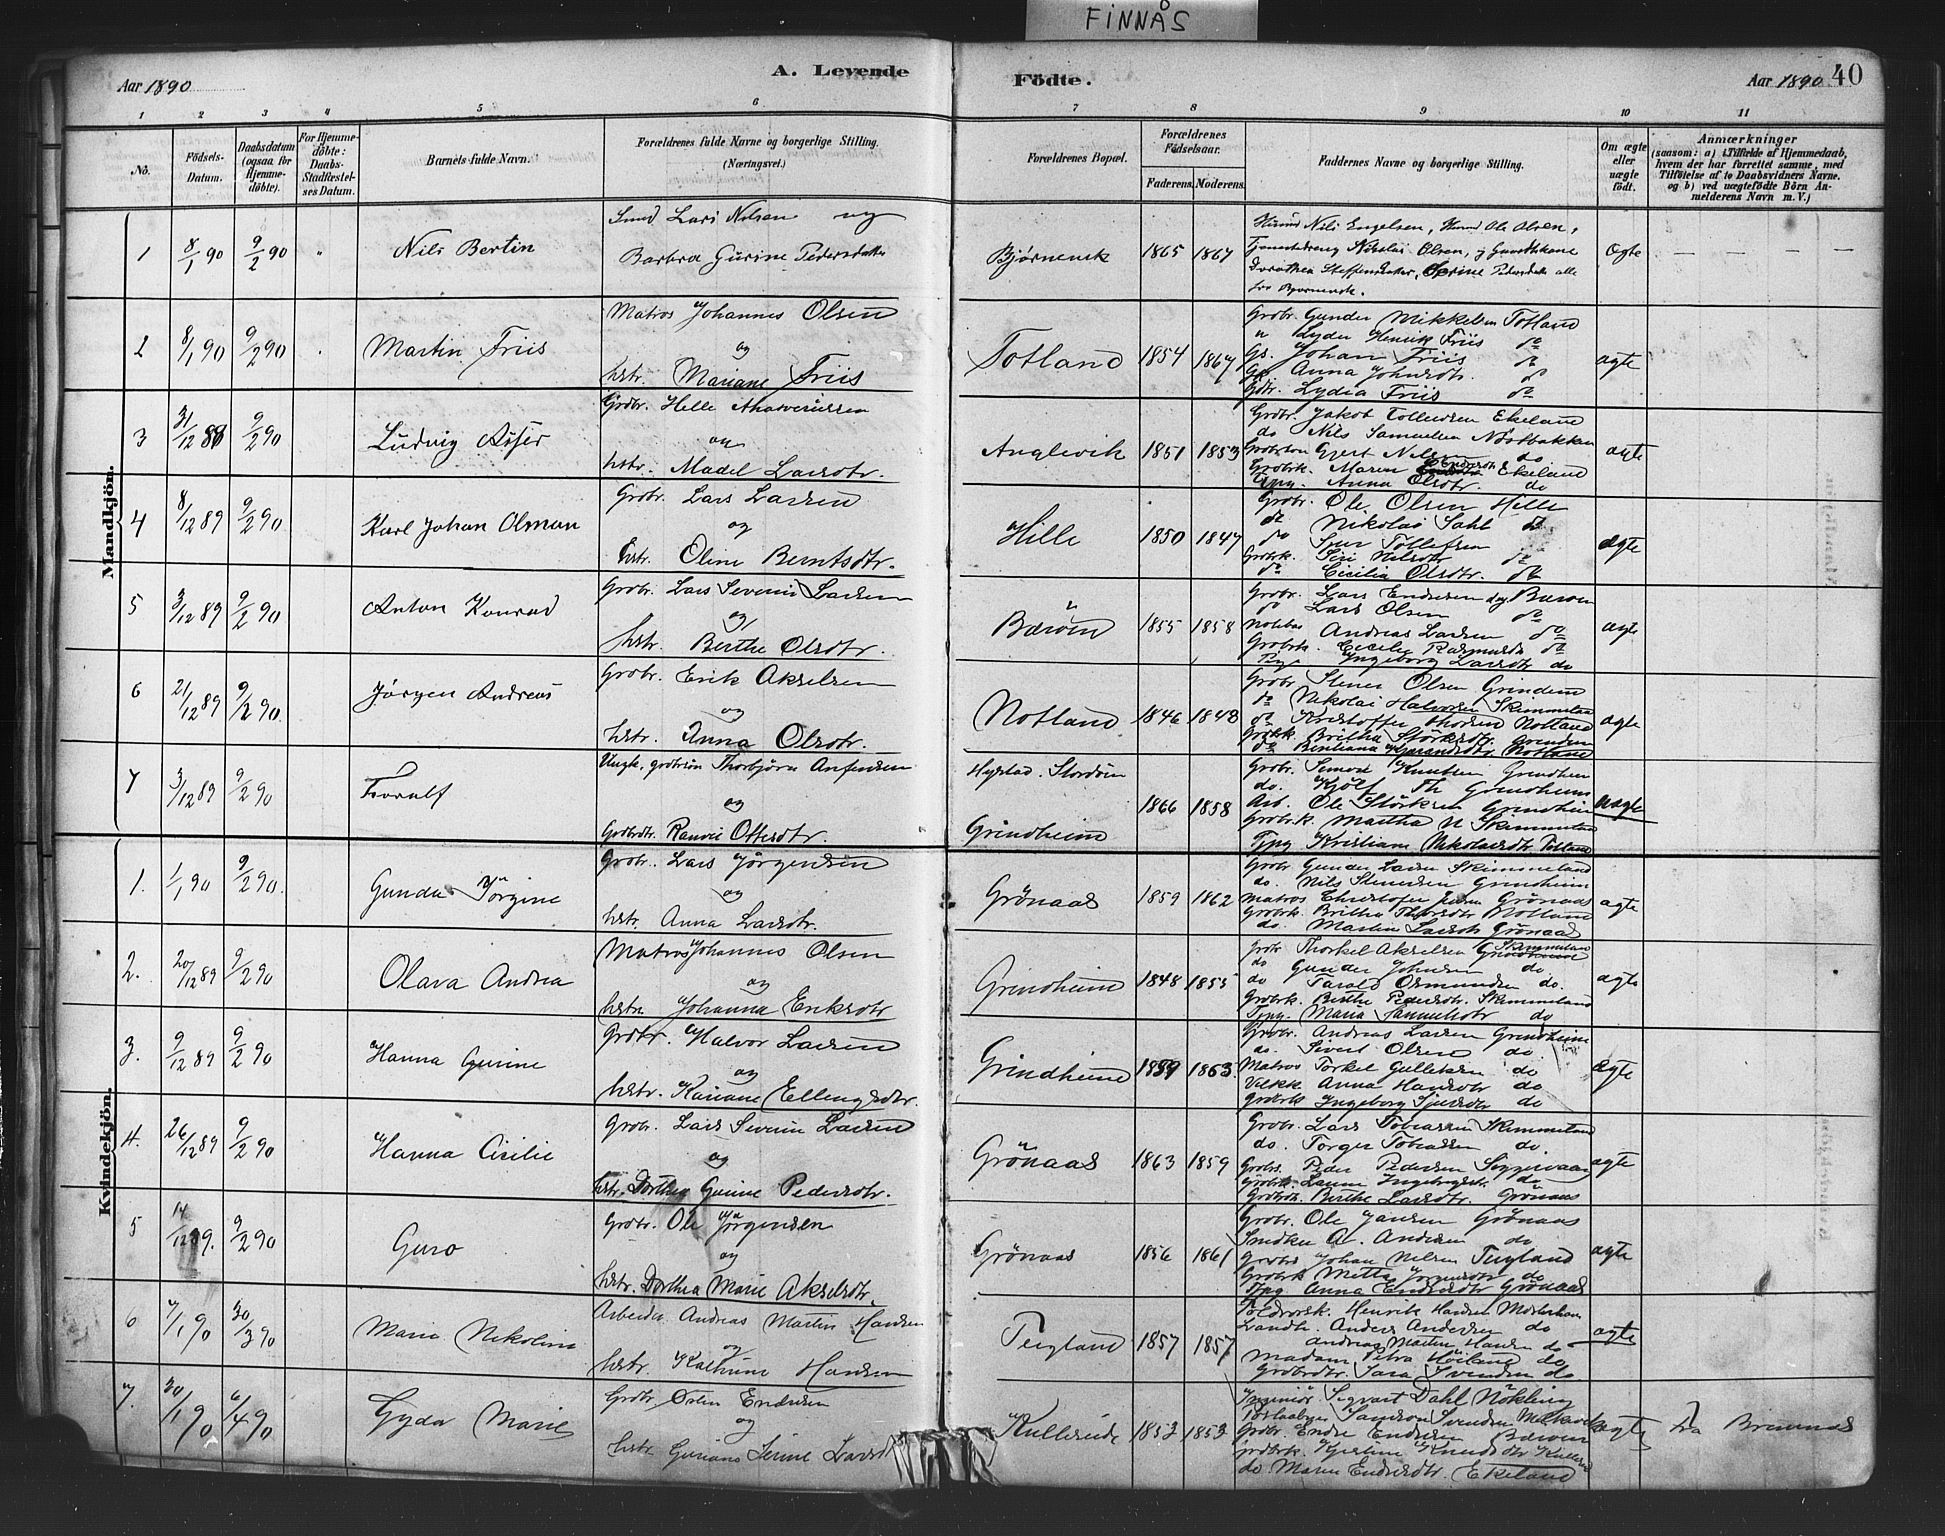 FINNÅS
Aar 1890
A. Levende
Födte.
Aar 1890
40
1 2 3 4 5 6 7 8 9 10 11
No.
Födsels-
Datum.
Daabsdatum
(ogsaa for
Hjemme-
døbte).
For Hjemme-
døbte:
Daabs-
Stadfæstel-
ses Datum.
Barnets fulde Navn.
Forældrenes fulde Navne og borgerlige Stilling.
(Næringsvei.)
Forældrenes Bopæl.
Forældrenes
Födselsaar.
Faderens. Moderens.
Faddernes Navne og borgerlige Stilling.
Om ægte
eller
uægte
født.
Anmærkninger
(saasom: a) i Tilfælde af Hjemmedaab,
hvem der har forrettet samme, med
Tilföielse af to Daabsvidners Navne.
og b) ved uægtefödte Börn An-
melderens Navn m. V.)
Mandkjön.
1 8/1 90 9/2 90 " Nils Bertin
Smed Lars Nilsen og
Barbra Gurine Pedersdatter
Bjørnevik 1865 1867
Husmd Nils Engelsen, Ole Olsen,
Nikolai Olsen,
Dorothea Steffensdatter, Serine Pedersdatter alle
fra Bjørnevik.
ægte — — —
2 8/1 90 9/2 90 Martin Friis
Matros Johannes Olsen
og
hstr. Mariane Friis
Totland 1854 1867
Grdbr. Gunder Mikkelsen Totland
Lyder Henrik Friis do
Gs. Johan Friis do
Anna Johnsdtr. do
Gdtr. Lydia Friis do
ægte
3 31/12 88 9/2 90 Ludvig Asser
Grdbr. Helle Ahasverussen
og
hstr. Madel Larsdtr.
Anglevik 1851 1853
Grdbr. Jakob Tollevsen Ekeland
do Nils Samuelsen Nøstbakken
Gjert Nilsen do
Grdbrk. Maren Endresdtr Ekeland
Anna Olsdtr. do
ægte
4 8/12 89 9/2 90 Karl Johan Olman
Grdbr. Lars Larsen
og
hstr. Oline Berntsdtr.
Hille 1850 1847
Grdbr. Ole Olsen Hille
do Nikolai Dahl do
do Tollefsen
Grdbrk. Siri Nilsdtr do
do Cicilia Olsdtr. do
ægte
5 3/12 89 9/2 90 Anton Konrad
Grdbr. Lars Severin Larsen
og
hstr. Berthe Olsdtr.
Børøen 1855 1858
Grdbr. Lars Endresen Børøen
do Lars Olsen do
Andreas Larsen do
Grdbrk. Cecilie Rasmusdtr do
Ingeborg Larsdtr do
ægte
6 21/12 89 9/2 90 Jørgen Andreas
Grdbr. Erik Akselsen
og
hstr. Anna Olsdtr.
Notland 1846 1848
Grdbr. Stener Olsen Grindem
do Nikolai Halvorsen Skimmeland
do Kristoffer Notland
Grdbrk. Britha Størksdtr. Grinden
do Notland
ægte
7 3/12 89 9/2 90 Toralf
Ungk. grdbrsøn Thorbjørn Anfinsen
og
Grdbrdtr. Ranvei Ottersdtr.
Hystad. Stordøen
Grindheim
1866 1858
Grdbr. Simon Knutsen Grindheim
do. Kjølf Th Grindheim
Arb. Ole Størksen Grindheim
Grdbrk. Martha N Skimmeland
Tjpg Kristiane Nikolaisdtr. Totland
uægte
Kvindekjön.
1. 1/1 90 9/2 90. Gunda Jørgine
Grdbr. Lars Jørgensen
og
hstr. Anna Larsdtr.
Grönaas 1859 1862
Grdbr Gunder Larsen Skimmeland
do. Nils Stenersen Grindheim
Matros Christofer Grönaas
Grdbrk. Britha Notland
do. Larsdtr Grönaas
ægte
2. 20/12 89 9/2 90 Olava Andrea
Matros Johannes Olsen
og
hstr. Johanna Eriksdtr
Grindheim 1848 1855
Grdbr Thorkel Akselsen Skimmeland
do Gunder Johnsen do
do Tarald Osmundsen do.
Grdbrk. Berthe Pedersdtr. Skimmeland
Tjpg. Maria Samuelsdtr do
ægte
3. 9/12 89 9/2 90 Hanna Gurine
Grdbr. Halvor Larsen
og
hstr. Kariane Ellingsdtr.
Grindheim 1859 1863.
Grdbr. Andreas Larsen Grindheim
do. Sivert Olsen do
Matros Torkel Gulliksen do
Anna Hansdtr do
Grdbrk Ingeborg Sjursdtr do
ægte
4. 26/12 89 9/2 90 Hanna Cicilie
Grdbr. Lars Severin Larsen
og
hstr. Dorthea Gurine Pedersdtr.
Grönaas 1863 1859
Grdbr. Lars Tobiassen Skimmeland
do. Torger Tobiassen do.
Peder Pedersen
Grdbrk. Ingebrigtsdtr do
Grdbrdtr. Berthe Larsdtr. Grönaas
ægte
5 14/12 89. 9/2 90 Guro
Grdbr. Ole Jørgensen
og
hstr. Dorthea Marie Akselsdtr.
Grönaas 1856 1861
Grdbr. Ole Jansen Grönaas
A. Andersen do
Johan Nilsen Tugland
Grdbrk Mette do
Tjpg Anna Endresdtr Grönaas
ægte
6 7/1 90 30/3 90 Maria Nikolina
Arbeider Andreas Martin Hansen
og
hstr. Kathrine Hansen
Tugland 1857 1857
Henrik Hansen Mosterhavn
Landh. Anders Andersen do
Andreas Martin Hansen do
Madam Petra Høiland do
Grdbrdtr. Sara Svendsen do
ægte
7. 30/1 90 6/4 90 Gyda Marie
Grdbr Endresen
og
hstr Guriane Serine Larsdtr
Kulleseide 1852 1853
Ingeniør Sigvart Dahl Nökling
Samson Svendsen
Grdbr. Endre Endresen Børøen
Grdbrk. Kjerstine Knudsdtr Kulles
do Maren Endresdtr. Ekeland
ægte fra Bremnes